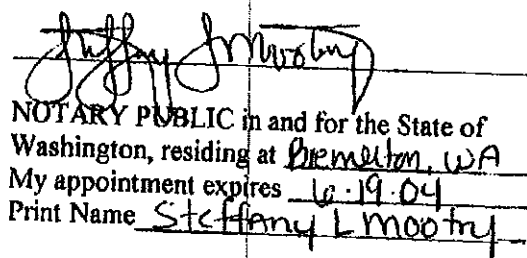 Steffany L Mootry
NOTARY PUBLIC in and for the State of
Washington, residing at Bremerton, WA
My appointment expires 6.19.04
Print Name Steffany L Mootry